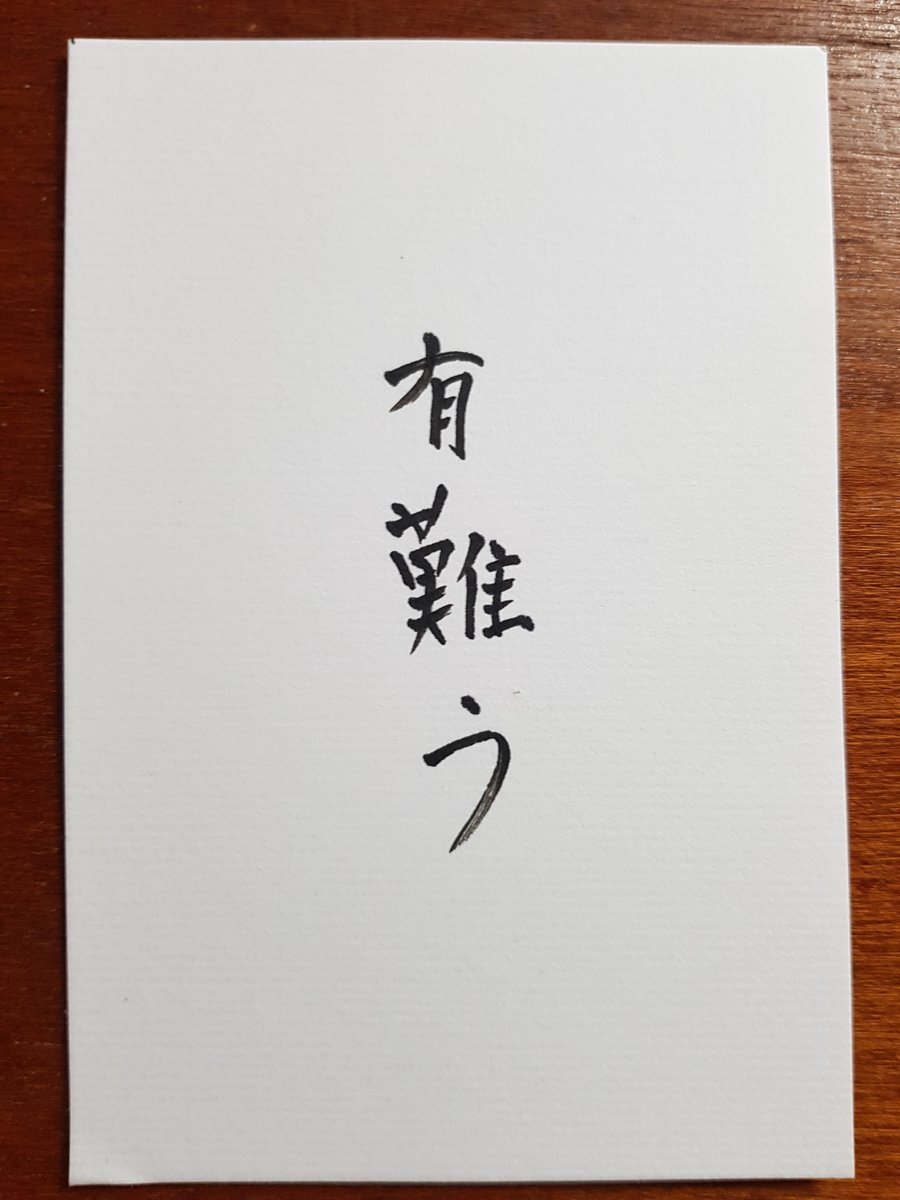 有難う